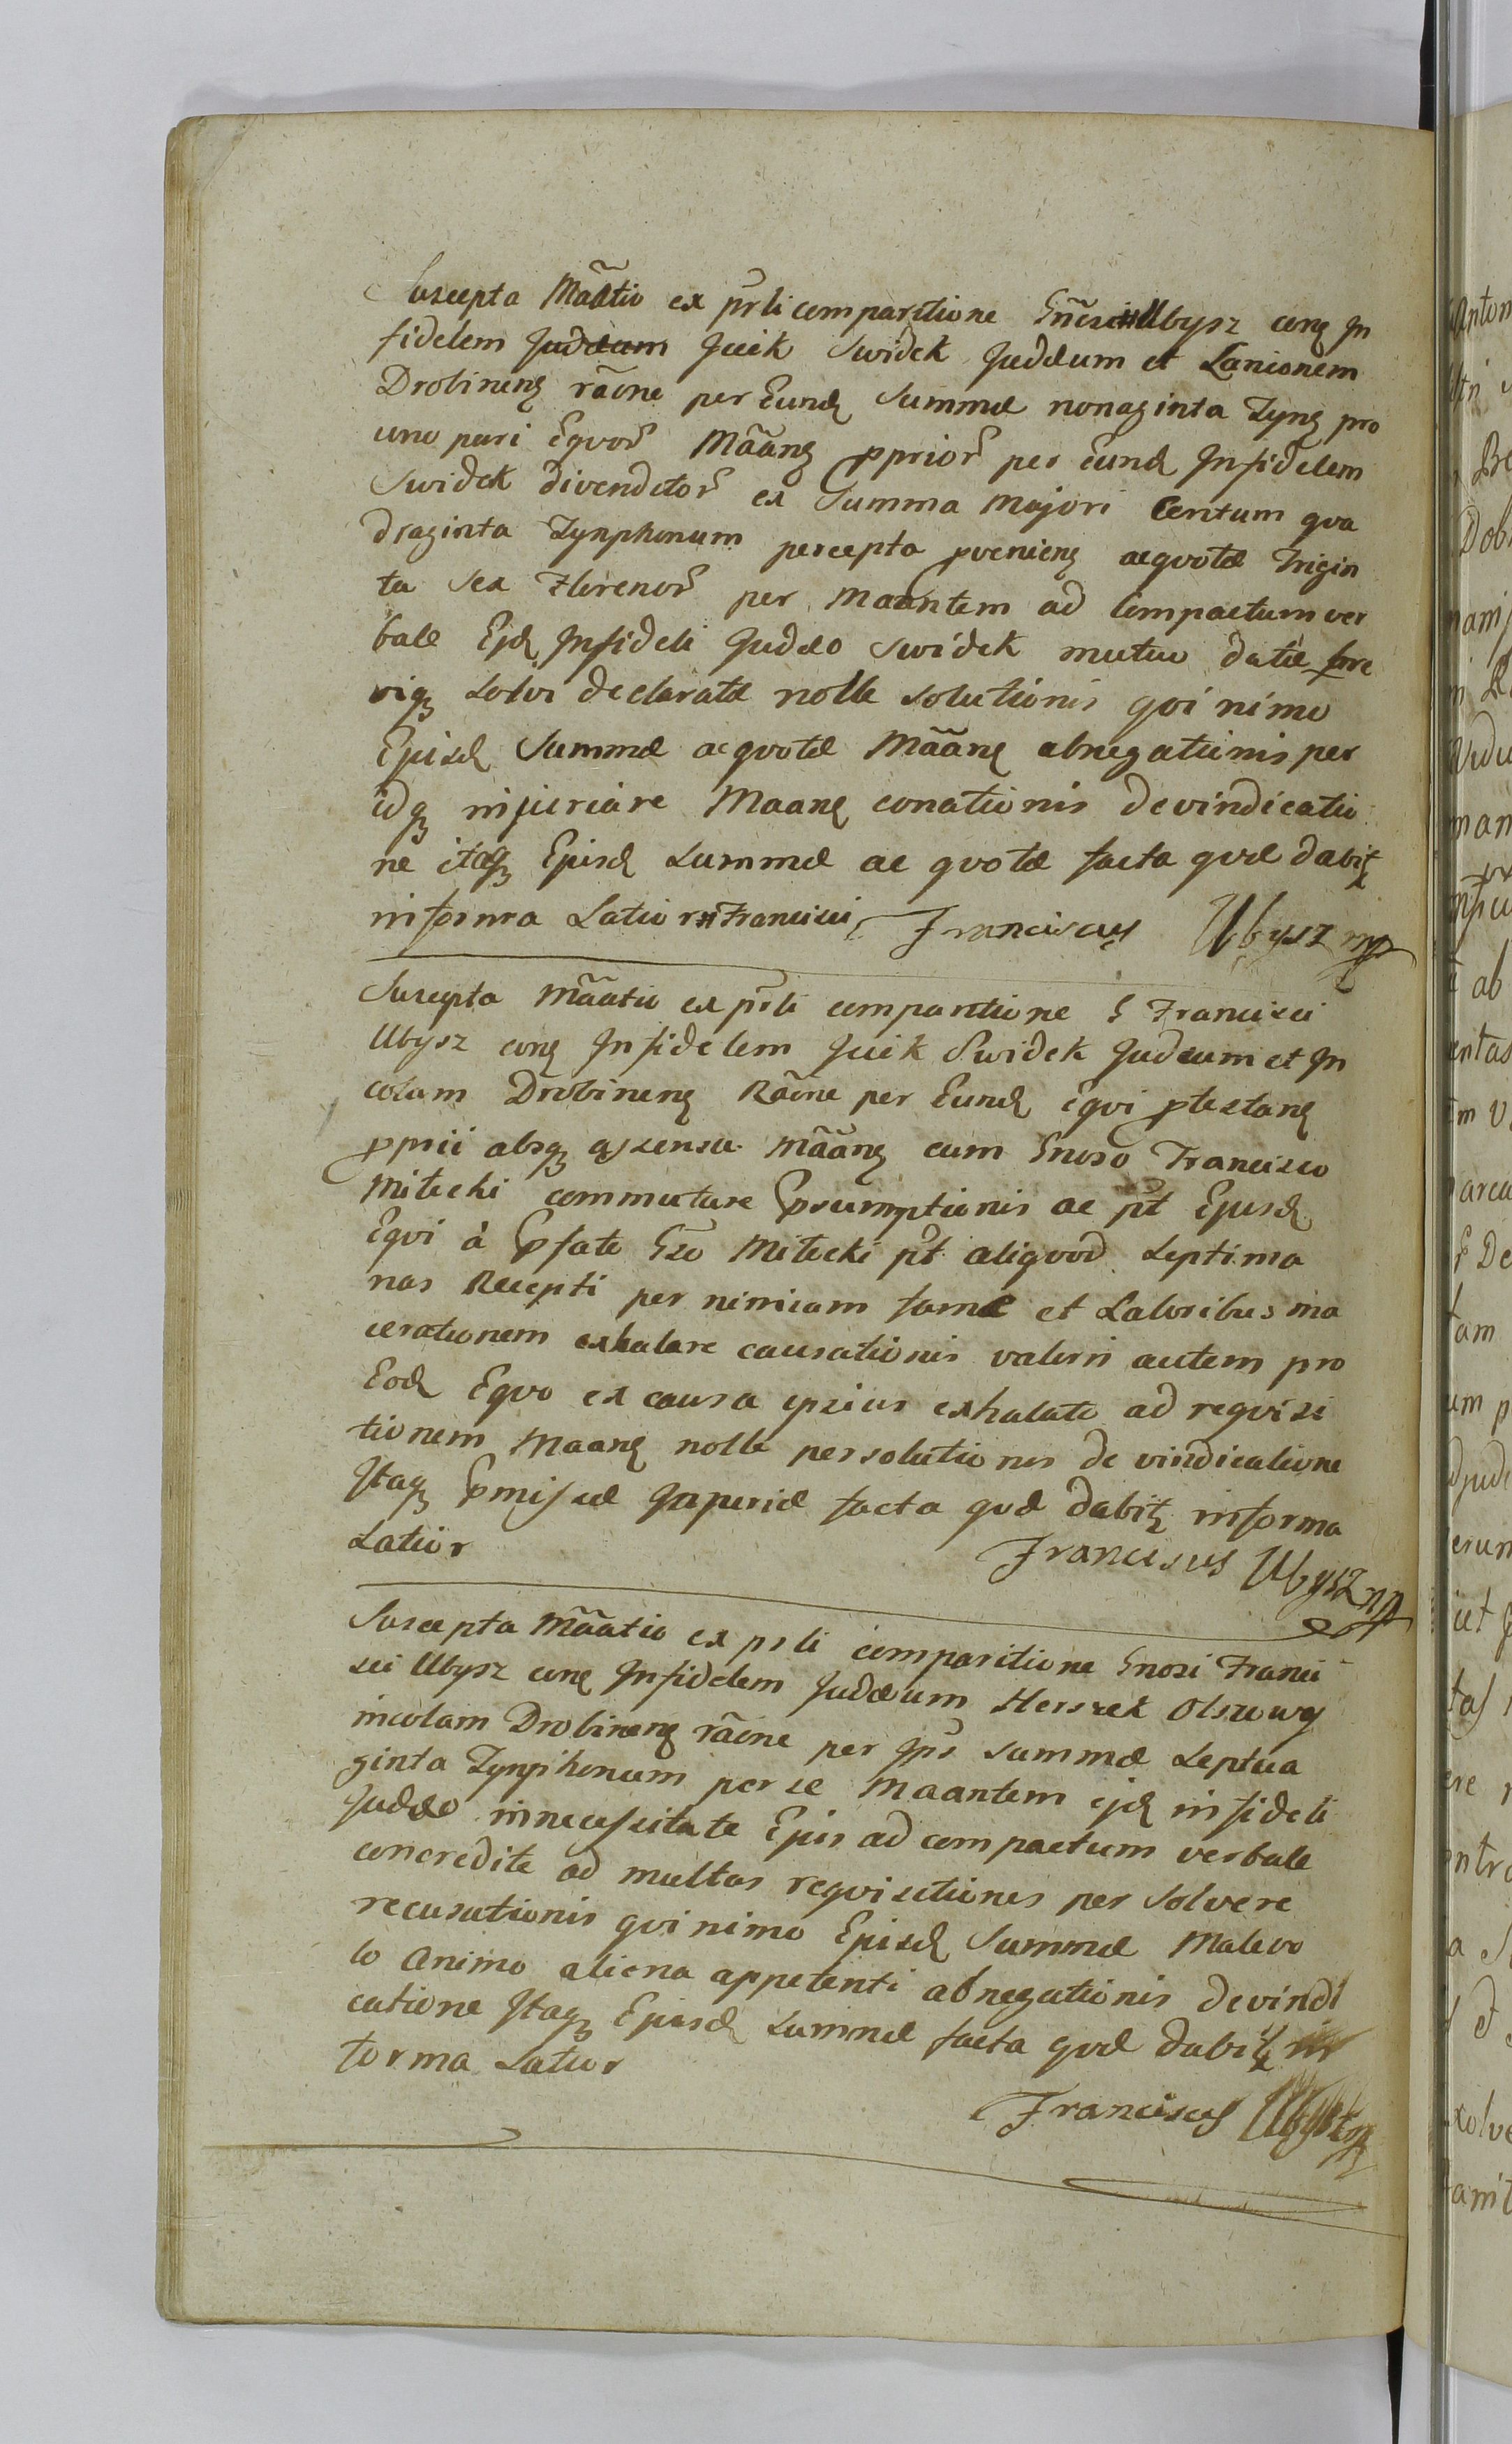 Suscepta Mãatio ex prsli comparitione Gnẽsi Ubysz conq̃ In
fidelem Judæum Jcik Swidek Judæum et Lanionem
Drobinenq̃ rãone per Eund summæ nonaginta Tynq̃ pro
uno pari Equor Mããnq̃ pprior per eund Infidelem
Swidek divenditor ex Summa Majori Centum qva
draginta Tynphonum percepta pvenienq̃ acqvotæ Trigin
ta Sex Florenor per Maantem ad Compactum ver
bale Ejd Infideli Judæo Swidek mutuo datæ
viq̃ Solvi declaratæ nolle solutionis qvi nimo
Ejusd Summæ acqvotæ Mããnq̃ abnegationis per
idq̃ injuriare Maanq̃ conationis de vindicatio
ne itaq̃ Ejusd Summæ ac qvotæ facta qvæ dabit̃
in forma Latior Francisci Franciscus Ubysz mp
Suscepta Mããtio ex prsli comparitione G Francisci
Ubysz conq̃ Infidelem Jcik Swidek Judæum et In
colam Drobinenq̃ Rãone per Eund Eqvi ptestanq̃
pprii absq̃ assensu Mããnq̃ cum Gnoso Francisco
Miłecki commutare Psumptionis ac pt Ejusd
Eqvi à Pfato Gso Miłecki pt aliqvod Septima
nas Recepti per nimiam famæ et Laboribus ma
cerationem exhalare causationis valoris autem pro
Eod Eqvo ex causa ipsius exhalato ad reqvisi
tionem Maanq̃ nolle persolutionis de vindicatione
Itaq̃ Pmissæ Injuriæ facta qvæ dabit̃ in forma
Latior Franciscus Ubysz mp
Suscepta Mããtio ex prsli comparitione Gnosi Franci
sci Ubysz conq̃ Infidelem Judæum Herszek
incolam Drobinenq̃ rãone per Ips summæ Septua
ginta Tynphonum per se Maantem ejd infideli
Judæo in necessitate Ejus ad compactum verbale
concredite ad multas reqvisitiones per solvere
recusationis qvi nimo Ejusd Summæ Malevo
lo animo aliena appetenti abnegationis de vindi
catione Itaq̃ Ejusd Summæ facta qvæ dabit̃ in
forma Latior
Franciscus Ubysz mp